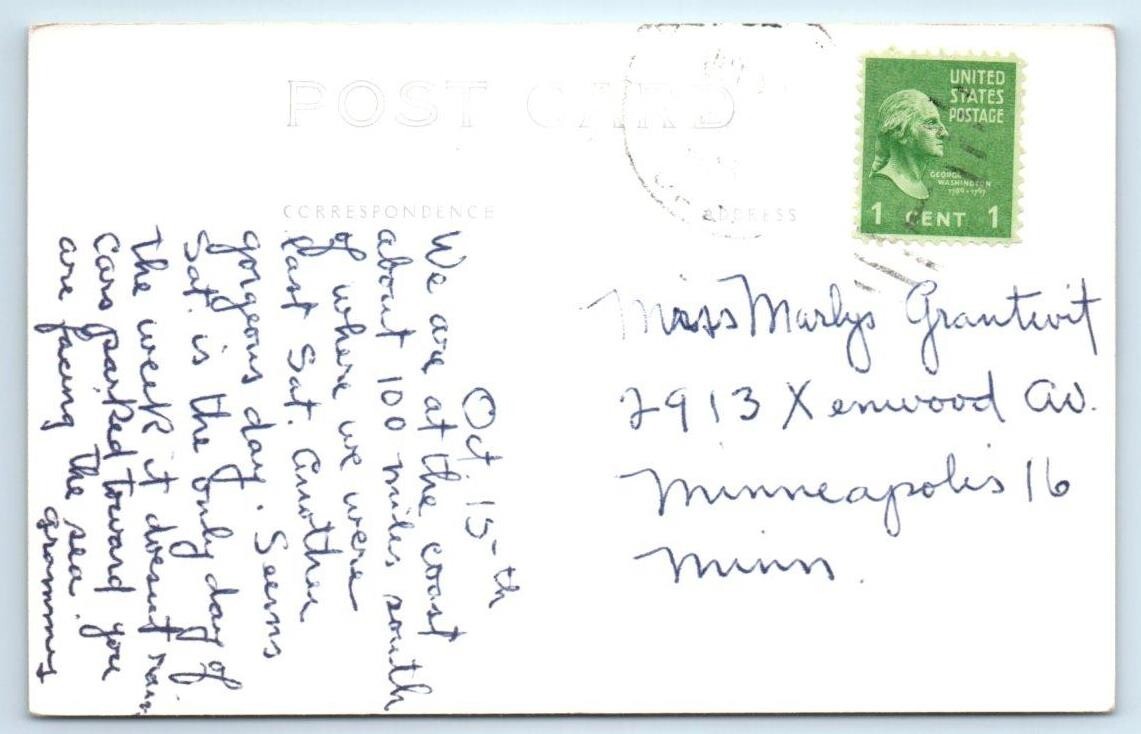 POST CARD
CORRESPONDENCE
ADDRESS
UNITED
STATES
POSTAGE
GEORGE
WASHINGTON
1789-1797
1 CENT 1
Oct. 15-th
We are at the coast
about 100 miles south
of where we were
last Sat. Another
gorgeous day. Seems
Sat. is the only day of
the week it doesnt rain.
Cars parked toward you
are facing the sea.
grammy
Miss Marlys Grantwit
2913 Xenwood Av.
Minneapolis 16
Minn.